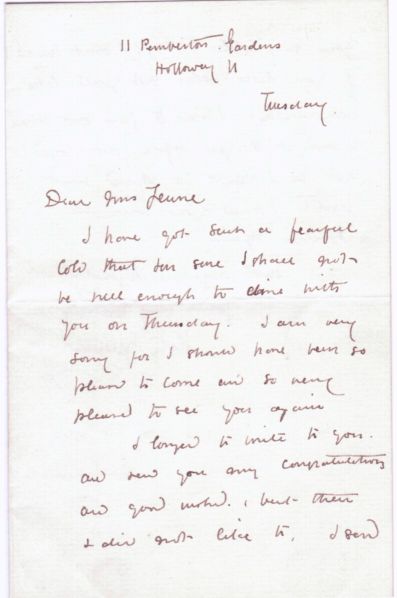 11 Pemberton Gardens
Holloway N
Tuesday.
Dear Mrs Jeune
I have got such a fearful
cold that I'm sure I shall not
be well enough to dine with
you on Thursday. I am very
sorry for I should have been so
pleased to come and so very
pleased to see you again
I longed to write to you.
and send you my congratulations
and good wishes, but then
I did not like to, I send